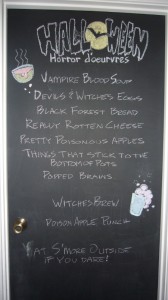 HALLOWEEN
Horror d'oeuvres
VAMPIRE BLOOD SOUP
DEVILS & WITCHES EGGS
BLACK FOREST BREAD
REALLY ROTTEN CHEESE
PRETTY POISONOUS APPLES
THINGS THAT STICK TO THE
BOTTOM OF POTS
POPPED BRAINS
WITCHES BREW
POISON APPLE PUNCH
EAT S'MORE OUTSIDE
IF YOU DARE!